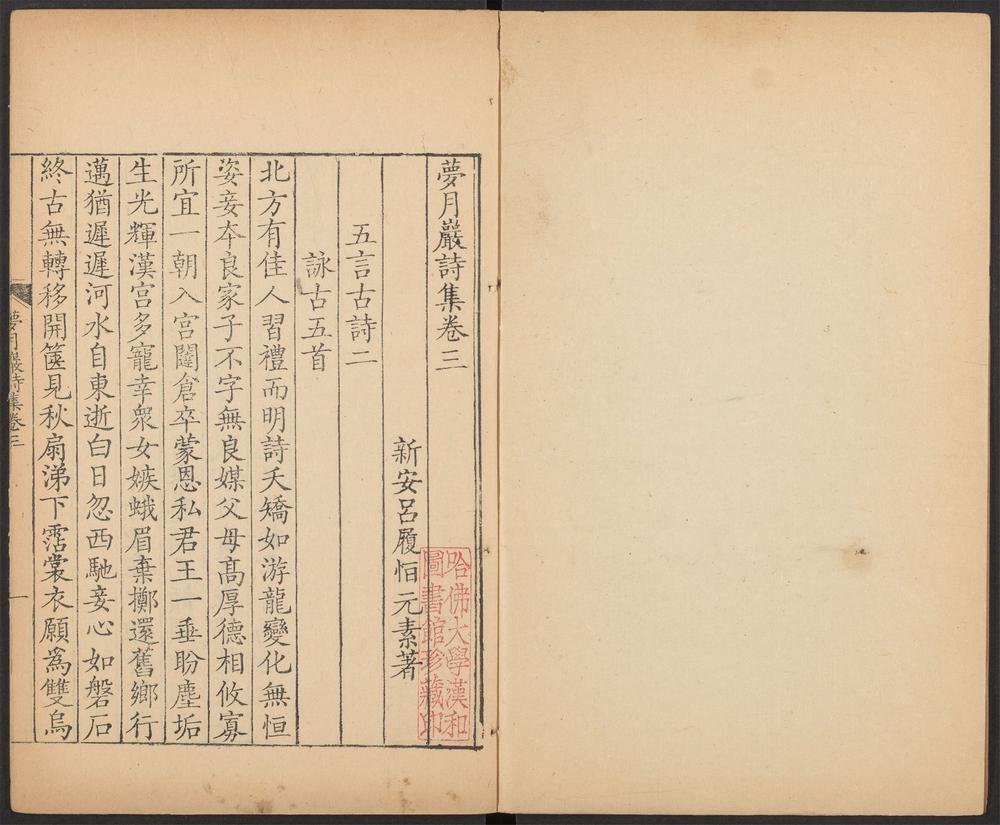 夢月巖詩集卷三
新安呂履恒元素著
五言古詩二
詠古五首
北方有佳人習禮而明詩夭矯如游龍變化無恒
姿妾本良家子不字無良媒父母高厚德相攸寡
所宜一朝入宮闥倉卒蒙恩私君王一垂盼塵垢
生光輝漢宮多寵幸衆女嫉蛾眉棄擲還舊鄉行
邁猶遲遲河水自東逝白日忽西馳妾心如磐石
終古無轉移開篋見秋扇涕下霑裳衣願為雙烏
夢月巖詩集卷三
一
哈佛大學漢和
圖書館珍藏印